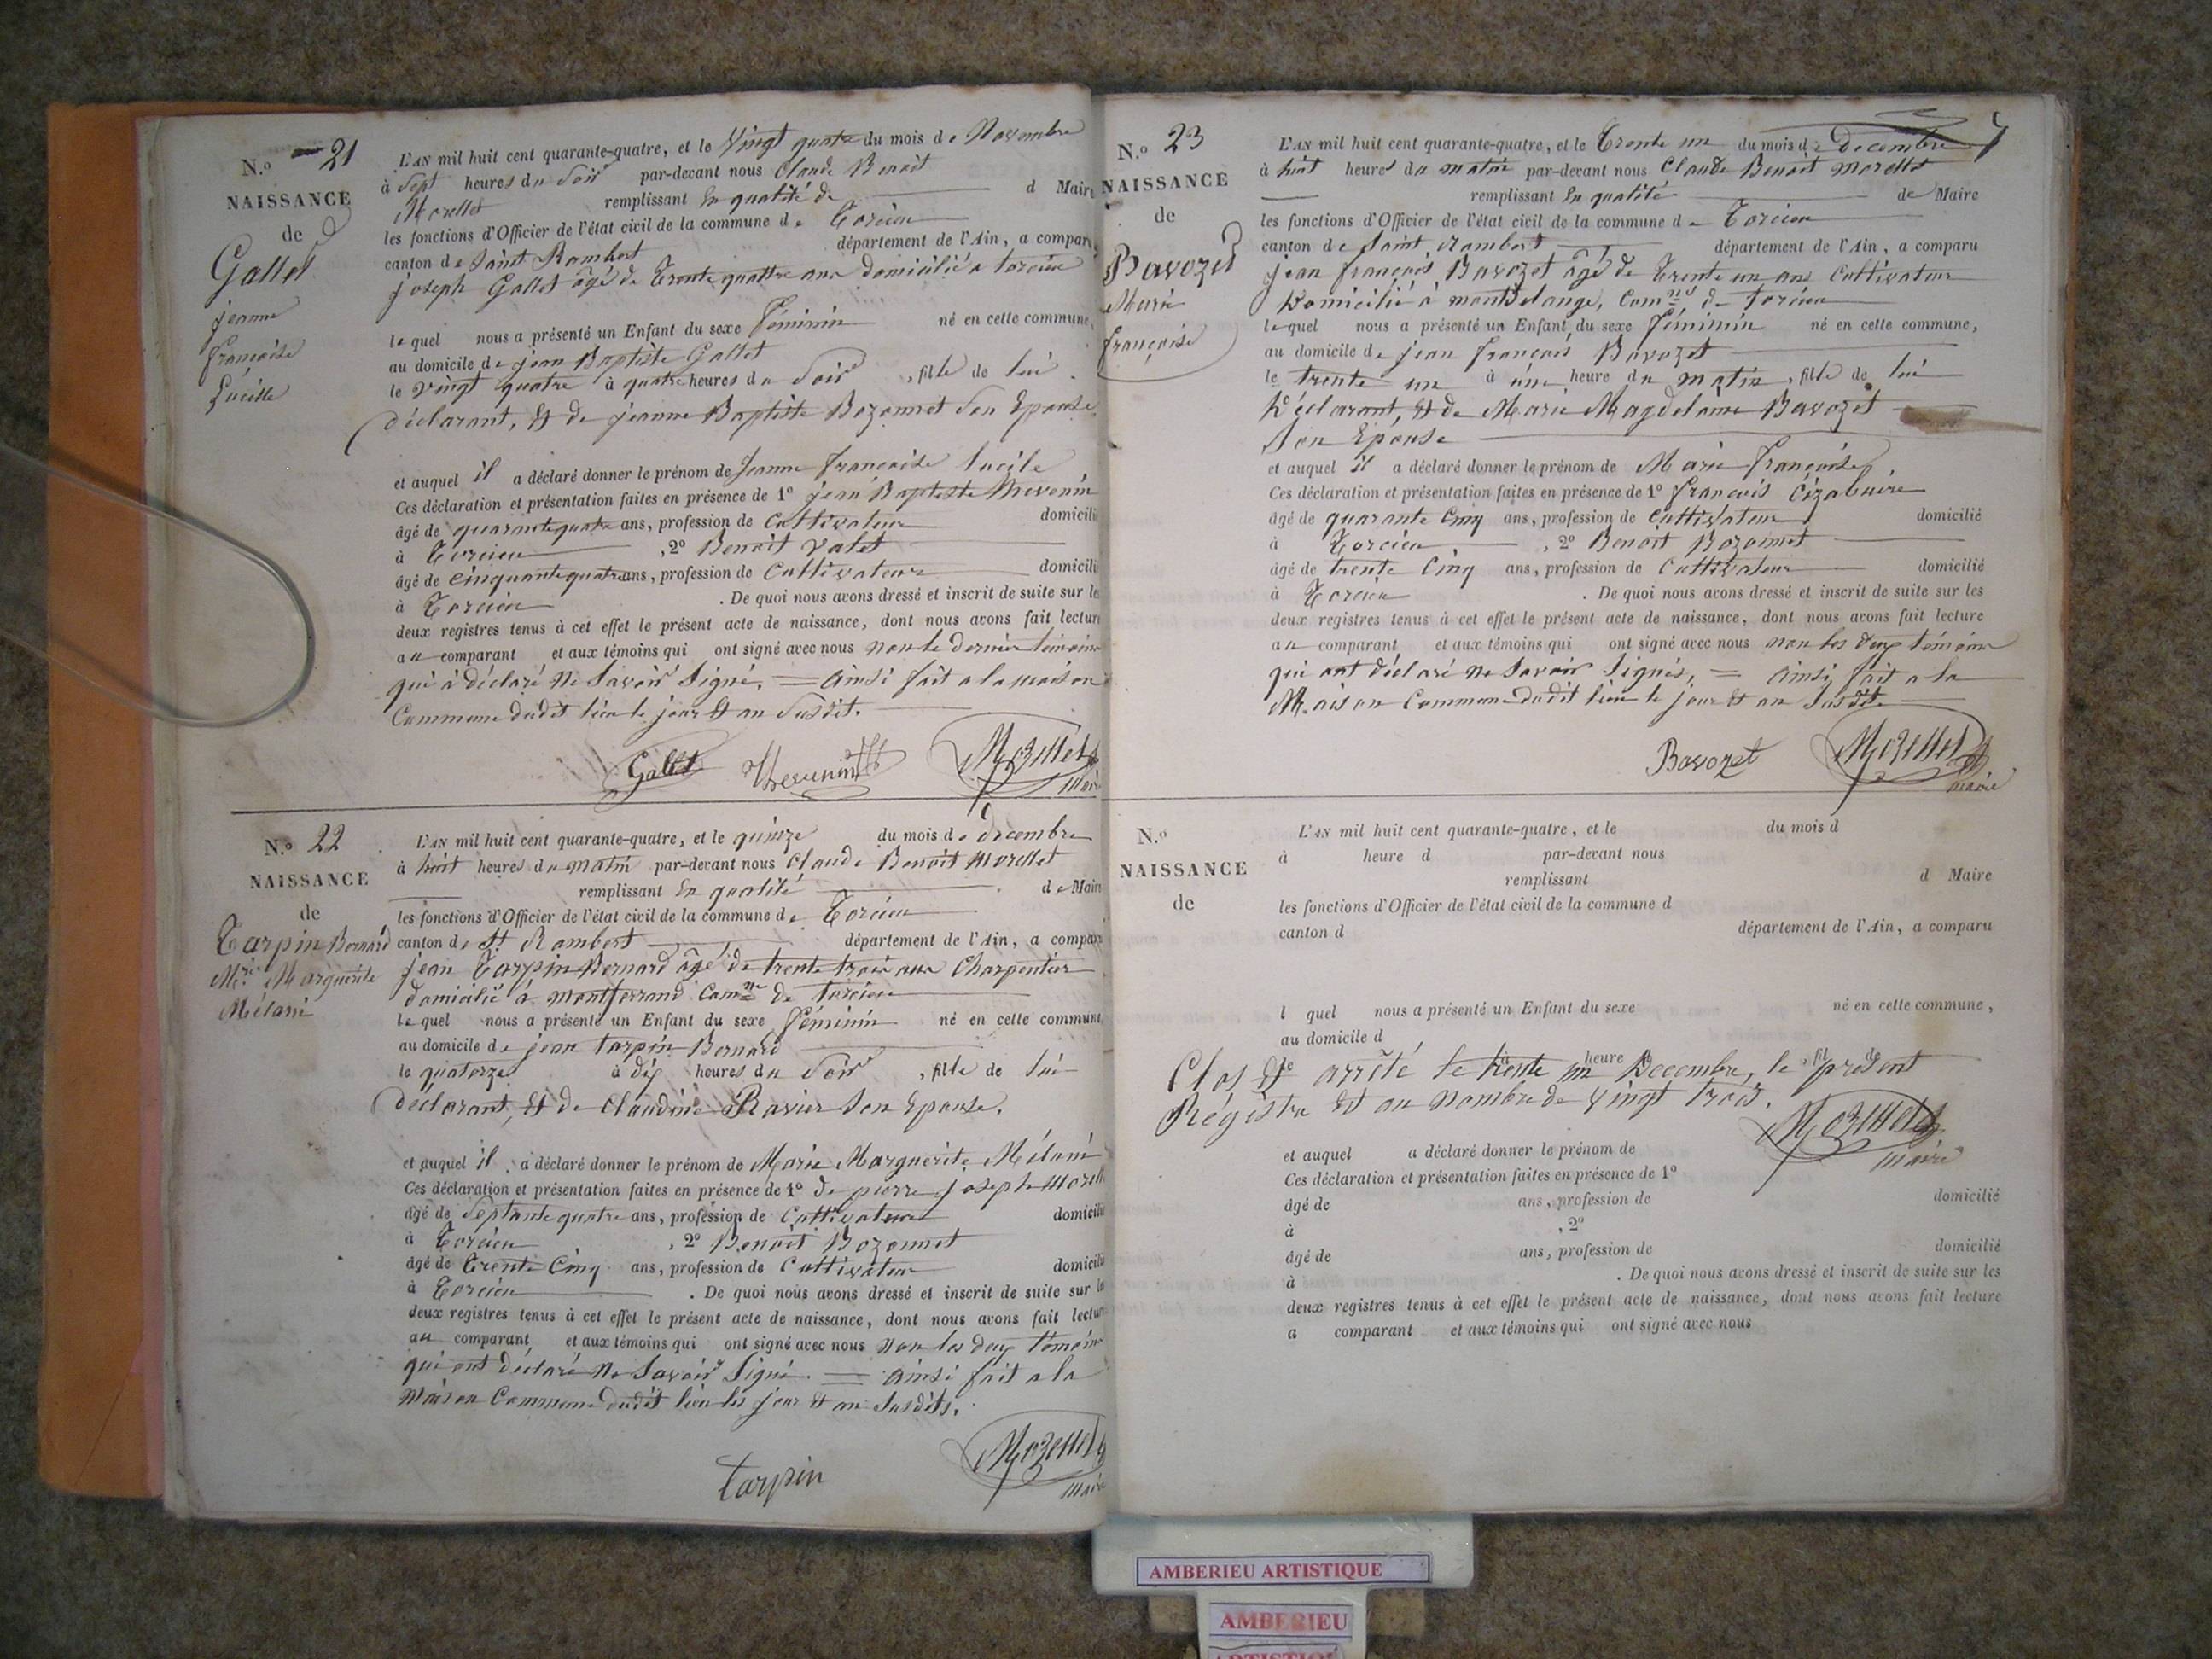 N.o 21
NAISSANCE
de
Gallet
jeanne
françoise
Lucille
L'AN mil huit cent quarante-quatre, et le Vingt quatre du mois de Novembre
à Sept heures du Soir par-devant nous Claude Benoit
Morellet remplissant En qualité de d Maire
les fonctions d'Officier de l'état civil de la commune de Torcieu
canton de Saint Rambert département de l'Ain, a comparu
joseph Gallet âgé de Trente quattre ans domicilié a torcieu
lequel nous a présenté un Enfant du sexe féminin né en cette commune,
au domicile de jean Baptiste Gallet
le vingt quatre à quatre heures du Soir, fille de lui
déclarant, Et de jeanne Baptiste Bozonnet Son Epouse.
et auquel il a déclaré donner le prénom de Jeanne françoise lucile
Ces déclaration et présentation faites en présence de 1º jean Baptiste Thevenin
âgé de quarante quatre ans, profession de Cultivateur domicilié
à Torcieu, 2º Benoit Valet
âgé de Cinquante quatre ans, profession de Cultivateur domicilié
à Torcieu. De quoi nous avons dressé et inscrit de suite sur les
deux registres tenus à cet effet le présent acte de naissance, dont nous avons fait lecture
au comparant et aux témoins qui ont signé avec nous non le dernier témoins
qui à déclaré Ne Savoir Signé. = Ainsi fait a la maison
Commune dudit lieu le jour Et an Susdit.
Gallet Thevenin Morellet
maire
N.o 22
NAISSANCE
de
Tarpin Bernard
Mie Marguerite
Mélani
L'AN mil huit cent quarante-quatre, et le quinze du mois de decembre
à huit heures du matin par-devant nous Claude Benoit Morellet
remplissant En qualité de Maire
les fonctions d'Officier de l'état civil de la commune de Torcieu
canton de St Rambert département de l'Ain, a comparu
jean Tarpin Bernard âgé de trente trois ans Charpentier
domicilié à montferrand Comne de torcieu
lequel nous a présenté un Enfant du sexe féminin né en cette commune,
au domicile de jean tarpin Bernard
le quatorze à dix heures du Soir, fille de lui
déclarant, Et de Claudine Ravier Son Epouse.
et auquel il a déclaré donner le prénom de Marie Marguerite Mélani
Ces déclaration et présentation faites en présence de 1º de pierre joseph Morellet
âgé de Septante quatre ans, profession de Cultivateur domicilié
à Torcieu, 2º Benoit Bozonnet
âgé de Trente Cinq ans, profession de Cultivateur domicilié
à Torcieu. De quoi nous avons dressé et inscrit de suite sur les
deux registres tenus à cet effet le présent acte de naissance, dont nous avons fait lecture
au comparant et aux témoins qui ont signé avec nous Non les deux témoins
qui ont déclaré Ne Savoir Signé. = Ainsi fait a la
Maison Commune dudit lieu les jour Et an Susdits.
Tarpin Morellet
maire
7
N.o 23
NAISSANCE
de
Bavozet
Marie
françoise
L'AN mil huit cent quarante-quatre, et le Trente un du mois de Decembre
à huit heures du matin par-devant nous Claude Benoit Morellet
remplissant En qualité de Maire
les fonctions d'Officier de l'état civil de la commune de Torcieu
canton de Saint Rambert département de l'Ain, a comparu
jean françois Bavozet âgé de Trente un ans Cultivateur
Domicilié à montdelange, Comne de torcieu
lequel nous a présenté un Enfant du sexe féminin né en cette commune,
au domicile de jean françois Bavozet
le trente un à une heure du matin, fille de lui
Déclarant, Et de Marie Magdelaine Bavozet
Son Epouse
et auquel il a déclaré donner le prénom de Marie françoise.
Ces déclaration et présentation faites en présence de 1º françois Cizabuire
âgé de quarante Cinq ans, profession de Cultivateur domicilié
à Torcieu, 2º Benoit Bozonnet
âgé de trente Cinq ans, profession de Cultivateur domicilié
à Torcieu. De quoi nous avons dressé et inscrit de suite sur les
deux registres tenus à cet effet le présent acte de naissance, dont nous avons fait lecture
au comparant et aux témoins qui ont signé avec nous non les deux témoins
qui ont déclaré ne Savoir Signés, = Ainsi fait a la
Maison Commune dudit lieu le jour Et an Susdit.
Bavozet Morellet
maire
N.o
NAISSANCE
de
L'AN mil huit cent quarante-quatre, et le du mois d
à heure d par-devant nous
remplissant d Maire
les fonctions d'Officier de l'état civil de la commune d
canton d département de l'Ain, a comparu
l quel nous a présenté un Enfant du sexe né en cette commune,
au domicile d
le à heure d, fil de
Clos Et arrêté le trente un Decembre, le présent
Régistre Et au Nombre de Vingt trois.
Morellet
maire
et auquel a déclaré donner le prénom de
Ces déclaration et présentation faites en présence de 1º
âgé de ans, profession de domicilié
à, 2º
âgé de ans, profession de domicilié
à. De quoi nous avons dressé et inscrit de suite sur les
deux registres tenus à cet effet le présent acte de naissance, dont nous avons fait lecture
a comparant et aux témoins qui ont signé avec nous
AMBERIEU ARTISTIQUE
AMBERIEU
ARTISTIQUE